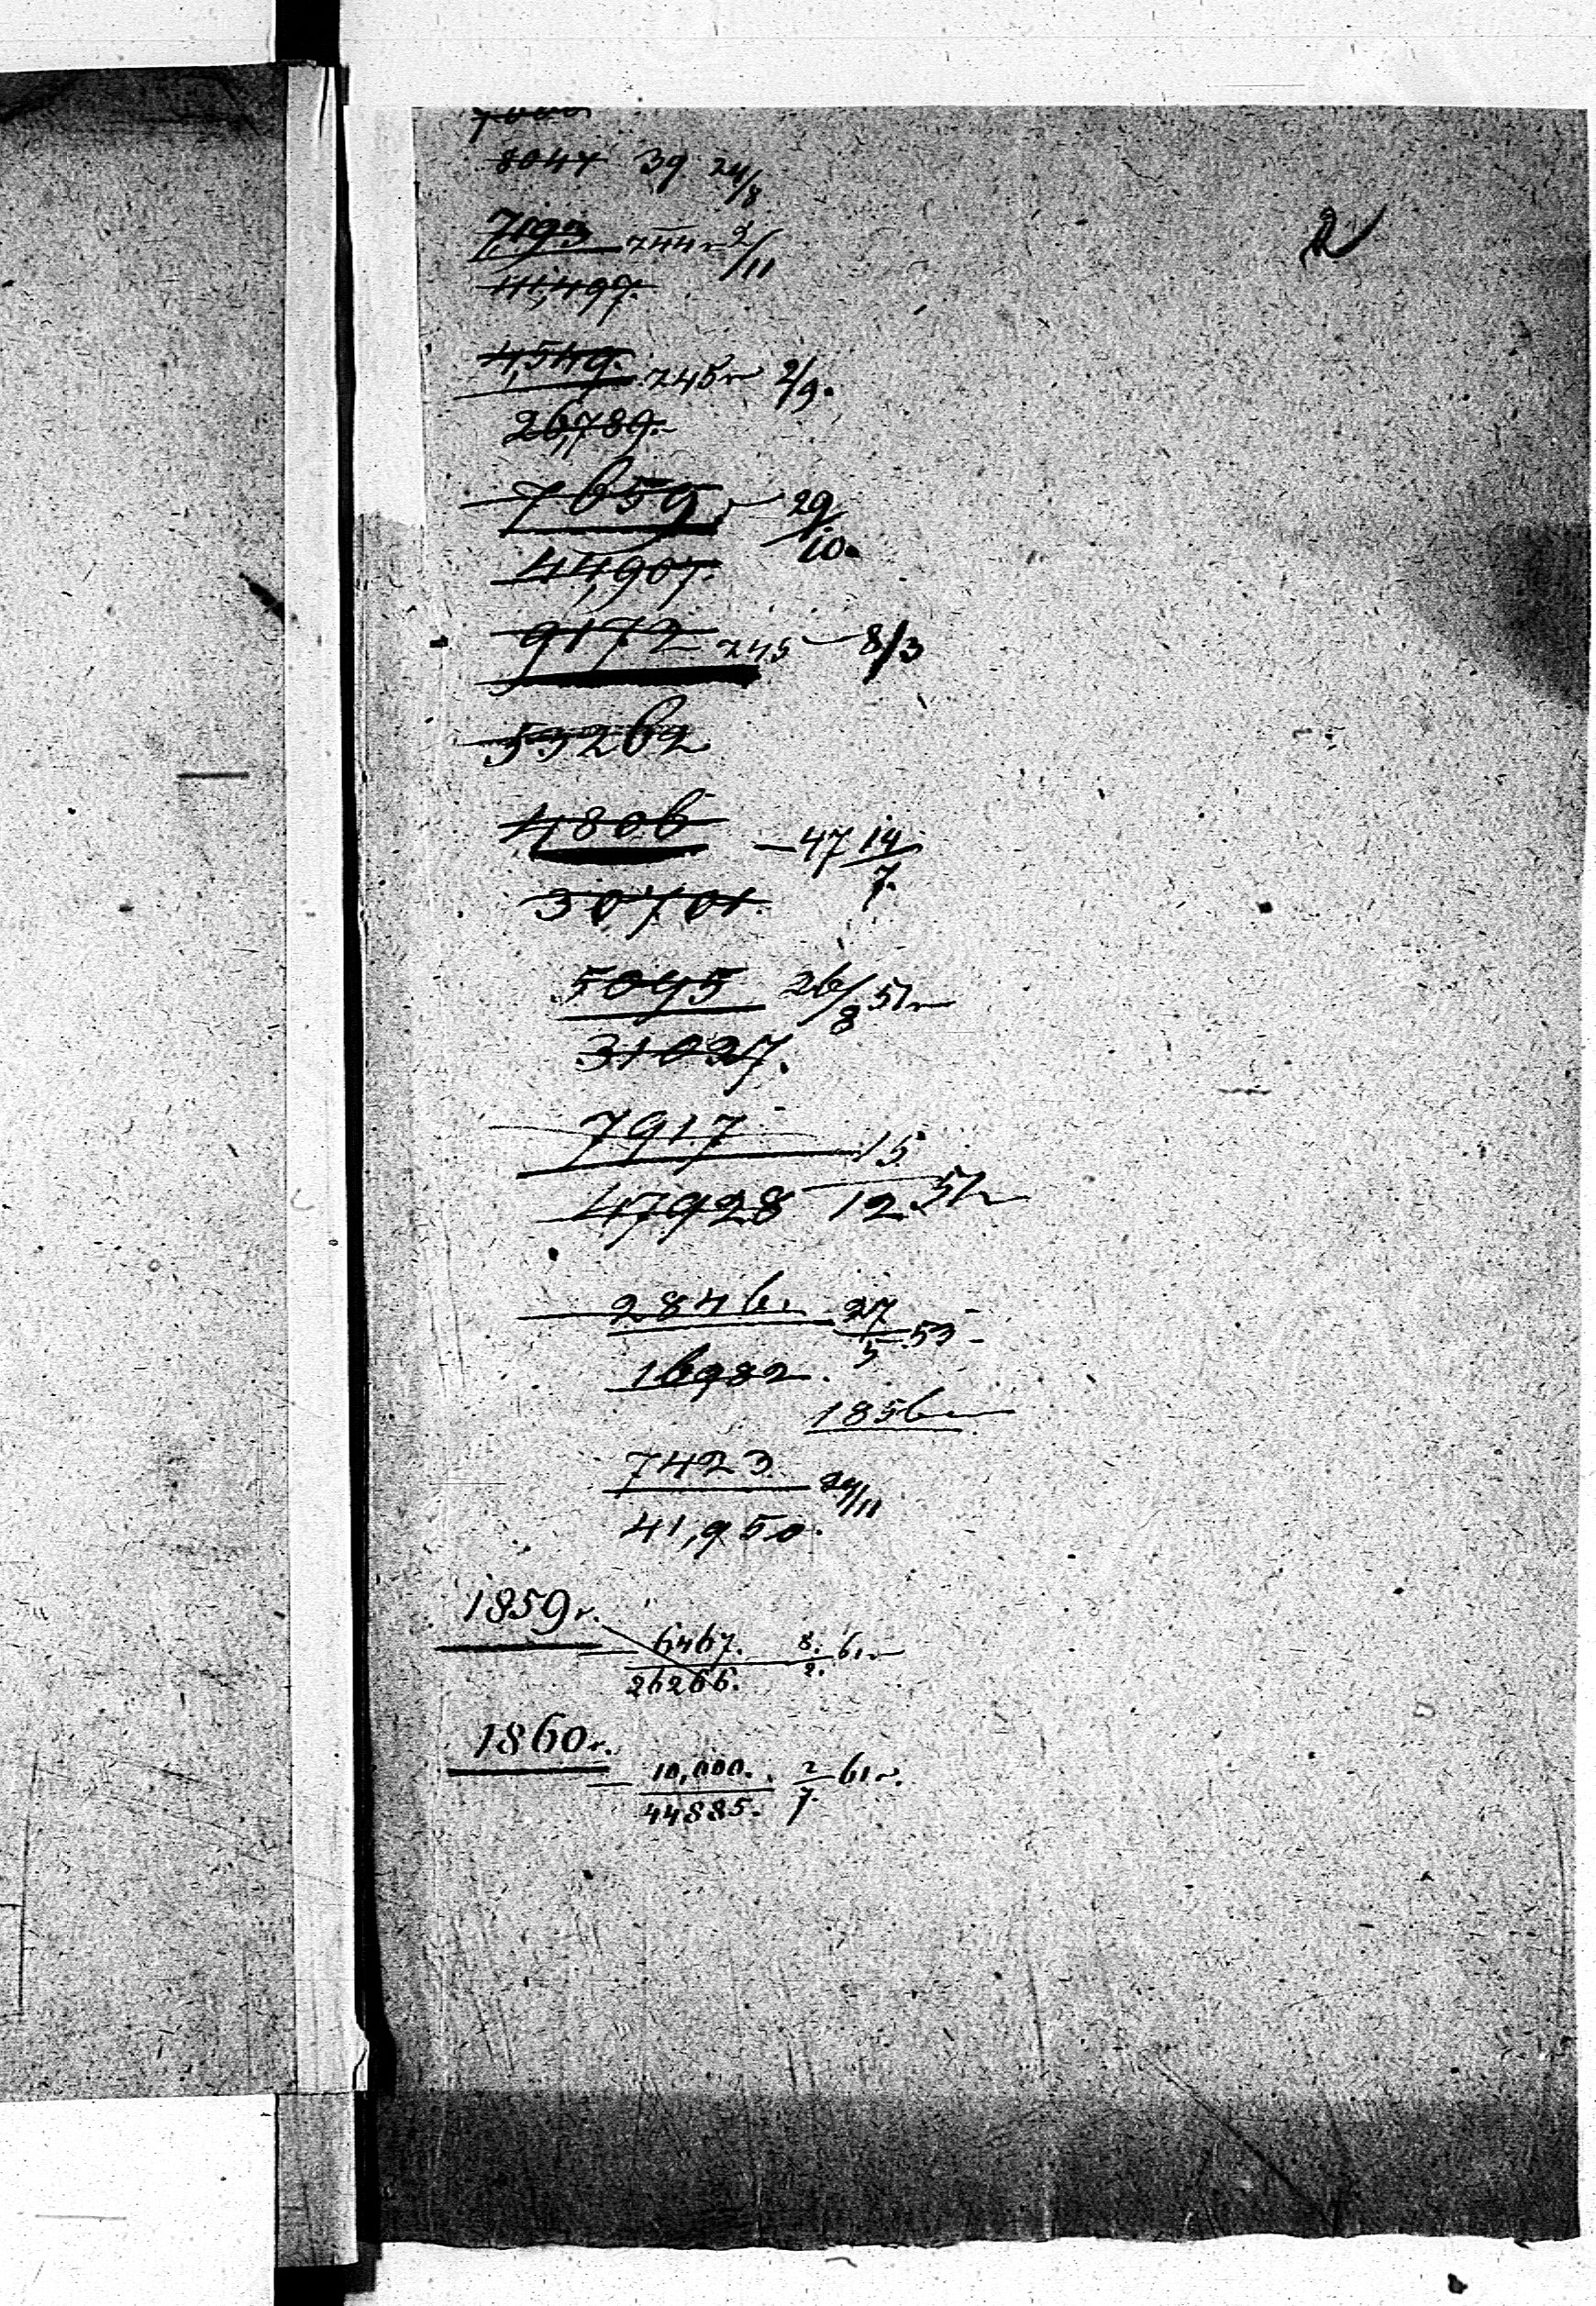 8047 39 24/8
2
7,193 244 г 2/11
41,497.
4,549. 245 г 2/9.
26,789.
7659. 29/10.
44,907.
9172 245 8/3
53262
4806 — 47 14/7.
30701.
5045 26/8 51 г
31027.
7917 15
47928 12 51 г
2846. 27/5 53
16982.
1856 г
7423 24/11
41,950.
1859 г.
6467. 8. 61 г
26266. 2.
1860 г.
10,000. 2 61 г.
44885. 7.